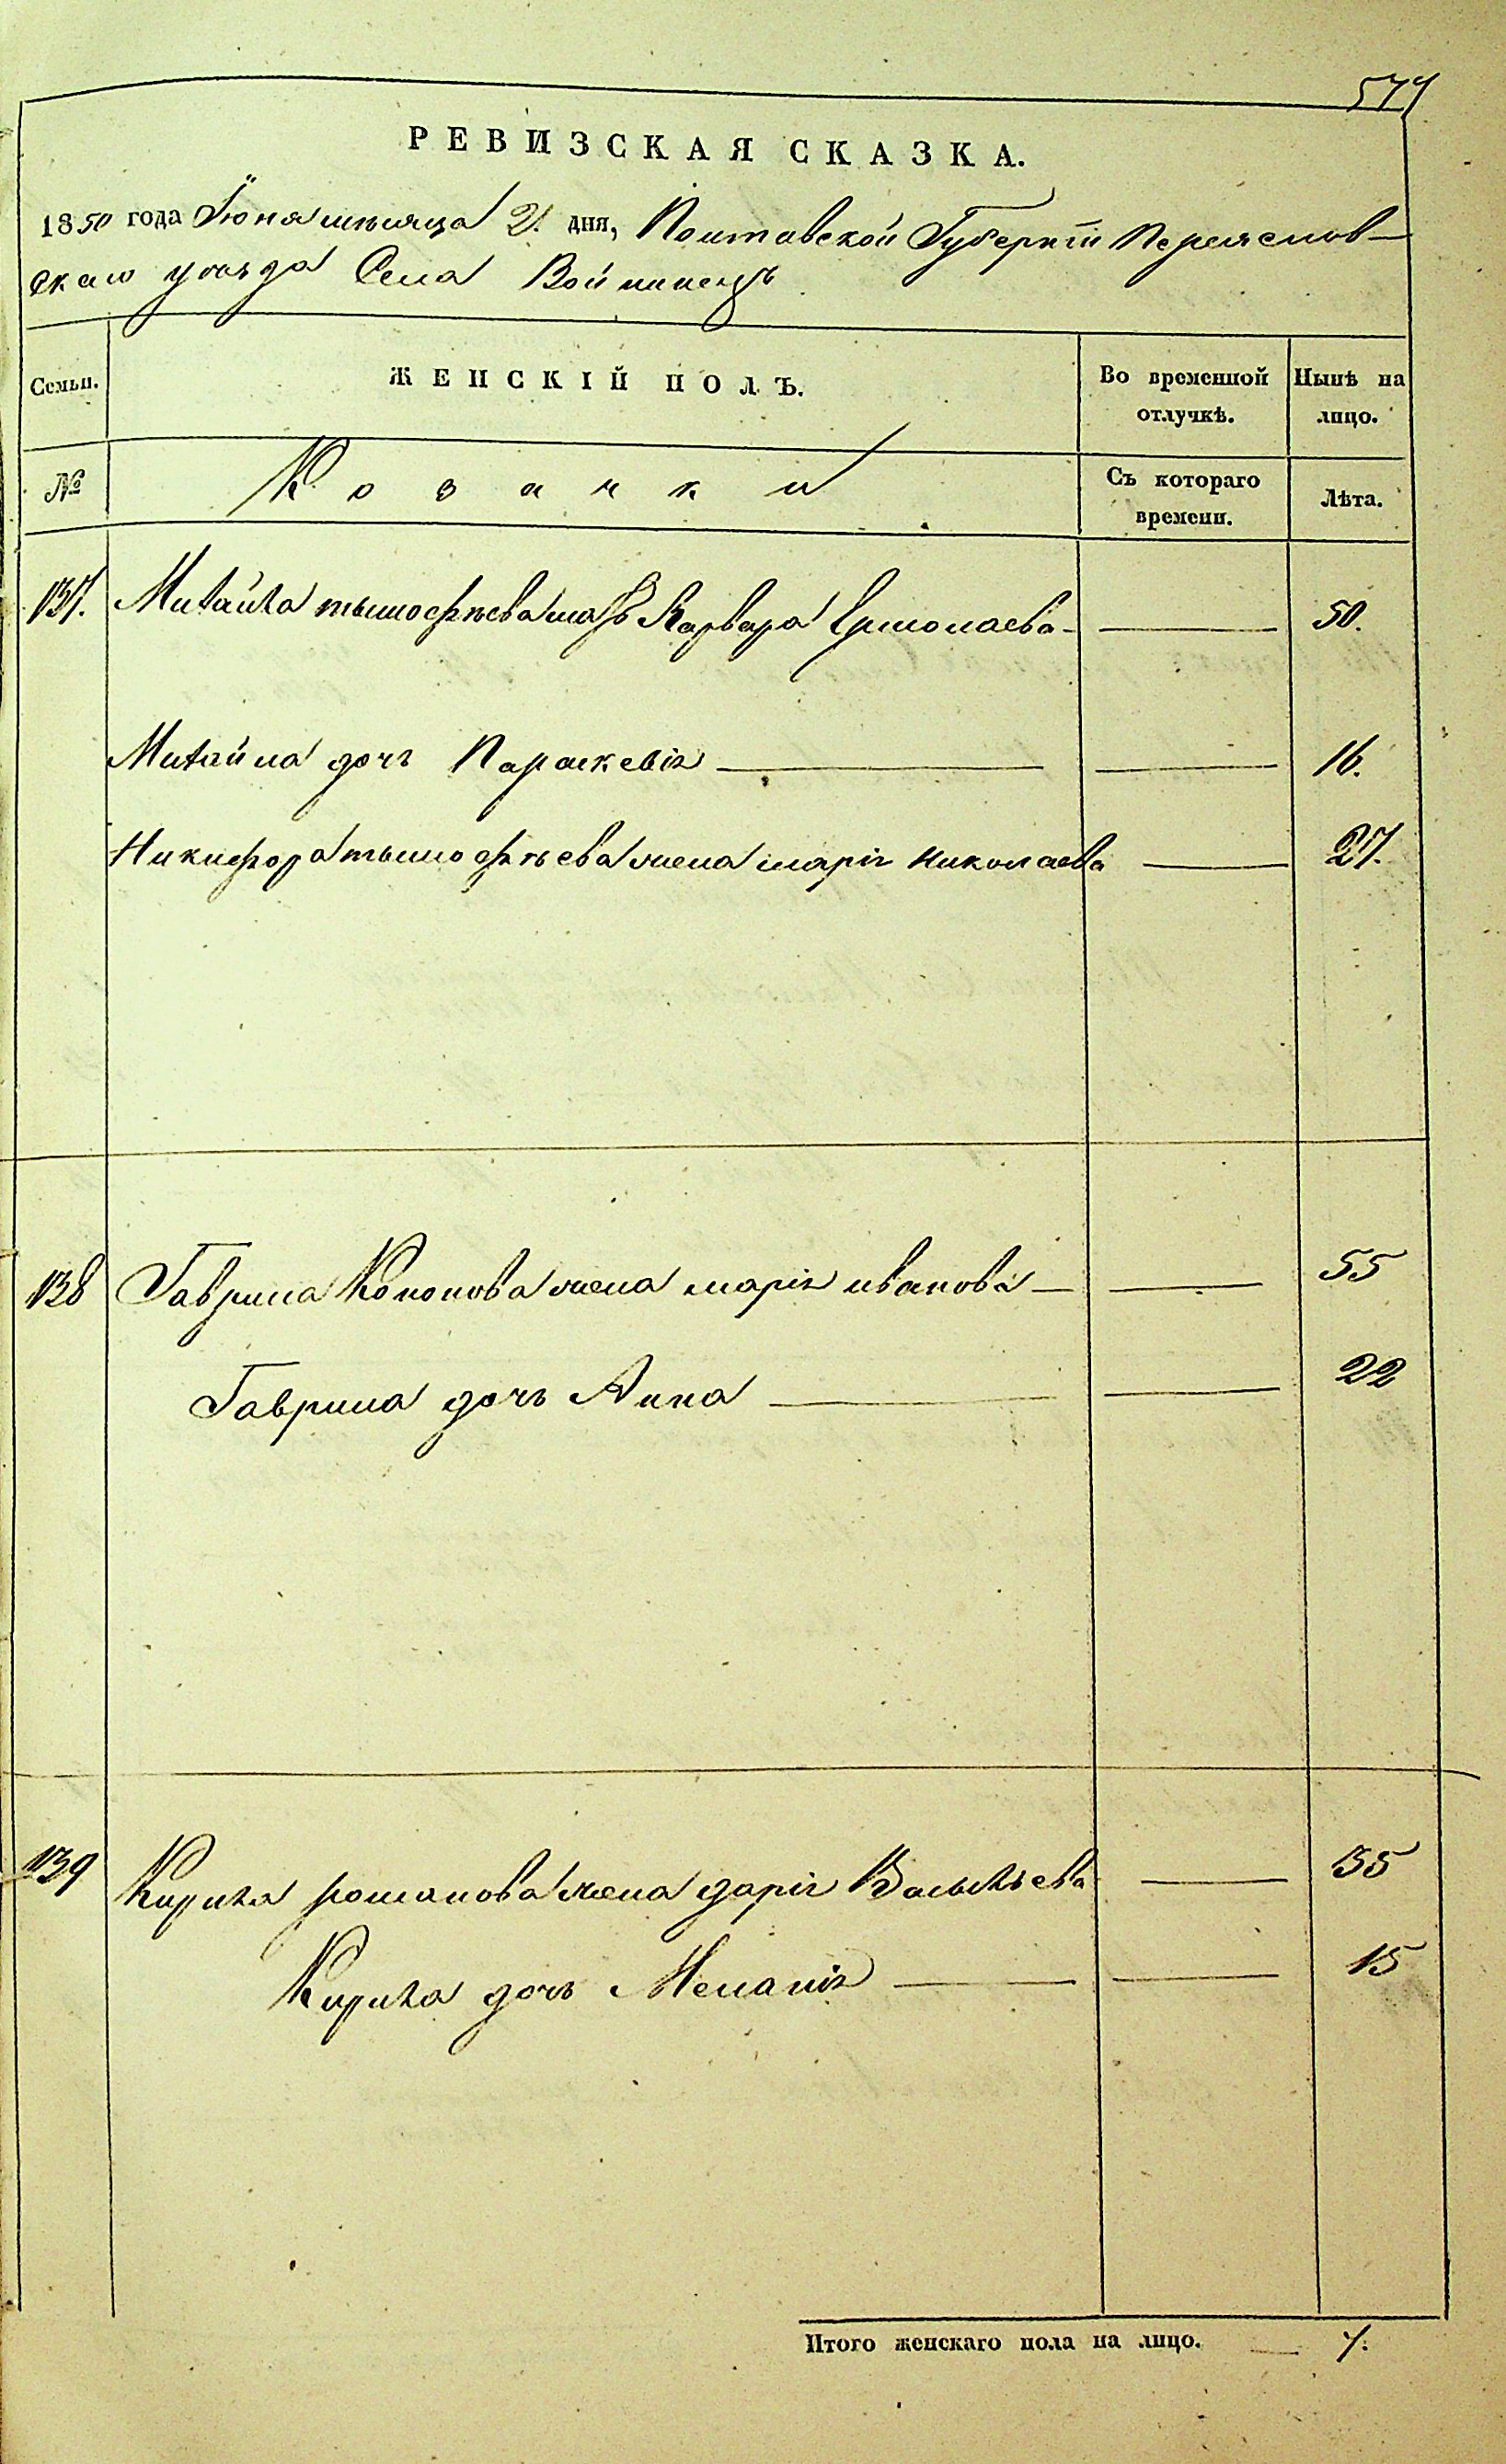 577
РЕВИЗСКАЯ СКАЗКА.
1850 года Іюня мѣсяца 2. дня, Полтавской Губерніи Переяслов-
скаго уѣзда Села Войтинецъ
Семьи. ЖЕНСКІЙ ПОЛЪ. Во временной отлучкѣ. Нынѣ на лицо.
№ Козачки Съ котораго времени. Лѣта.
137. Михайла тымофѣева Варвара Ермолаева — 50.
Михайла дочь Параскевія — 16.
Никифора тымофѣева жена марія Николаева — 27.
138 Гаврила Кононова жена марія иванова — 55
Гаврила дочь Анна — 22
139 Кирила романова жена дарія Васыльева — 55
Кирила дочь Меланія — 15
Итого женскаго пола на лицо. — 7.